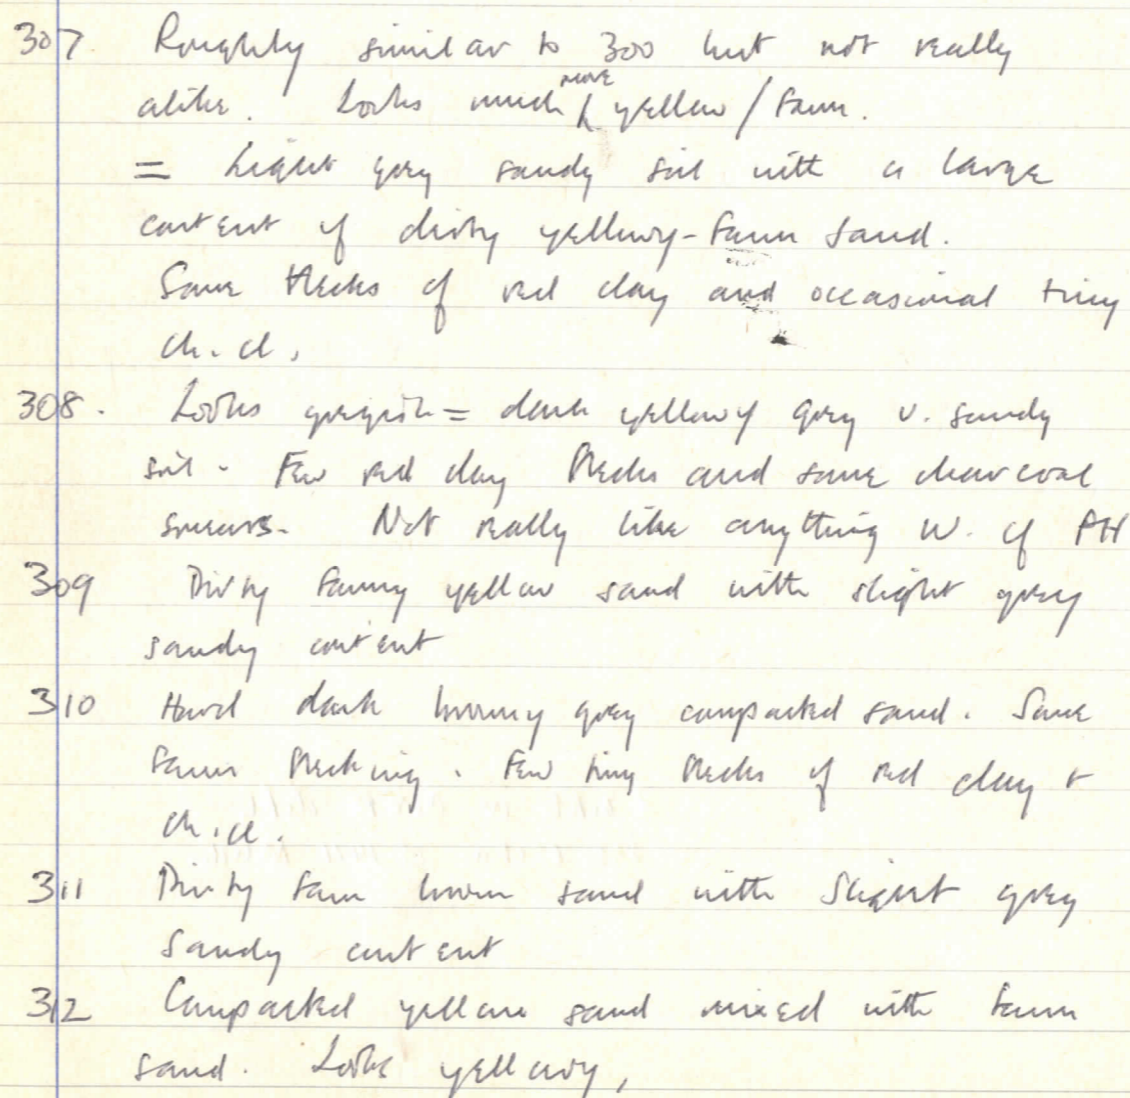 307 Roughly similar to 300 but not really
alike. Looks much more yellow/fawn.
= Light grey sandy soil with a large
content of dirty yellowy-fawn sand.
Some flecks of red clay and occasional tiny
ch. cl.
308. Looks greyish = dark yellowy grey v. sandy
soil. Few red clay flecks and some charcoal
smears. Not really like anything W. of PH
309 Dirty fawny yellow sand with slight grey
sandy content
310 Hard dark browny grey compacted sand. Some
fawn flecking. Few tiny flecks of red clay +
ch. cl.
311 Dirty fawn brown sand with slight grey
sandy content
312 Compacted yellow sand mixed with fawn
sand. Looks yellowy,